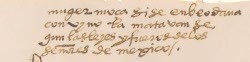 muger moça dize en beodava
con vino la matavan de
quin las leyes y fueros de los
señores de mexico.